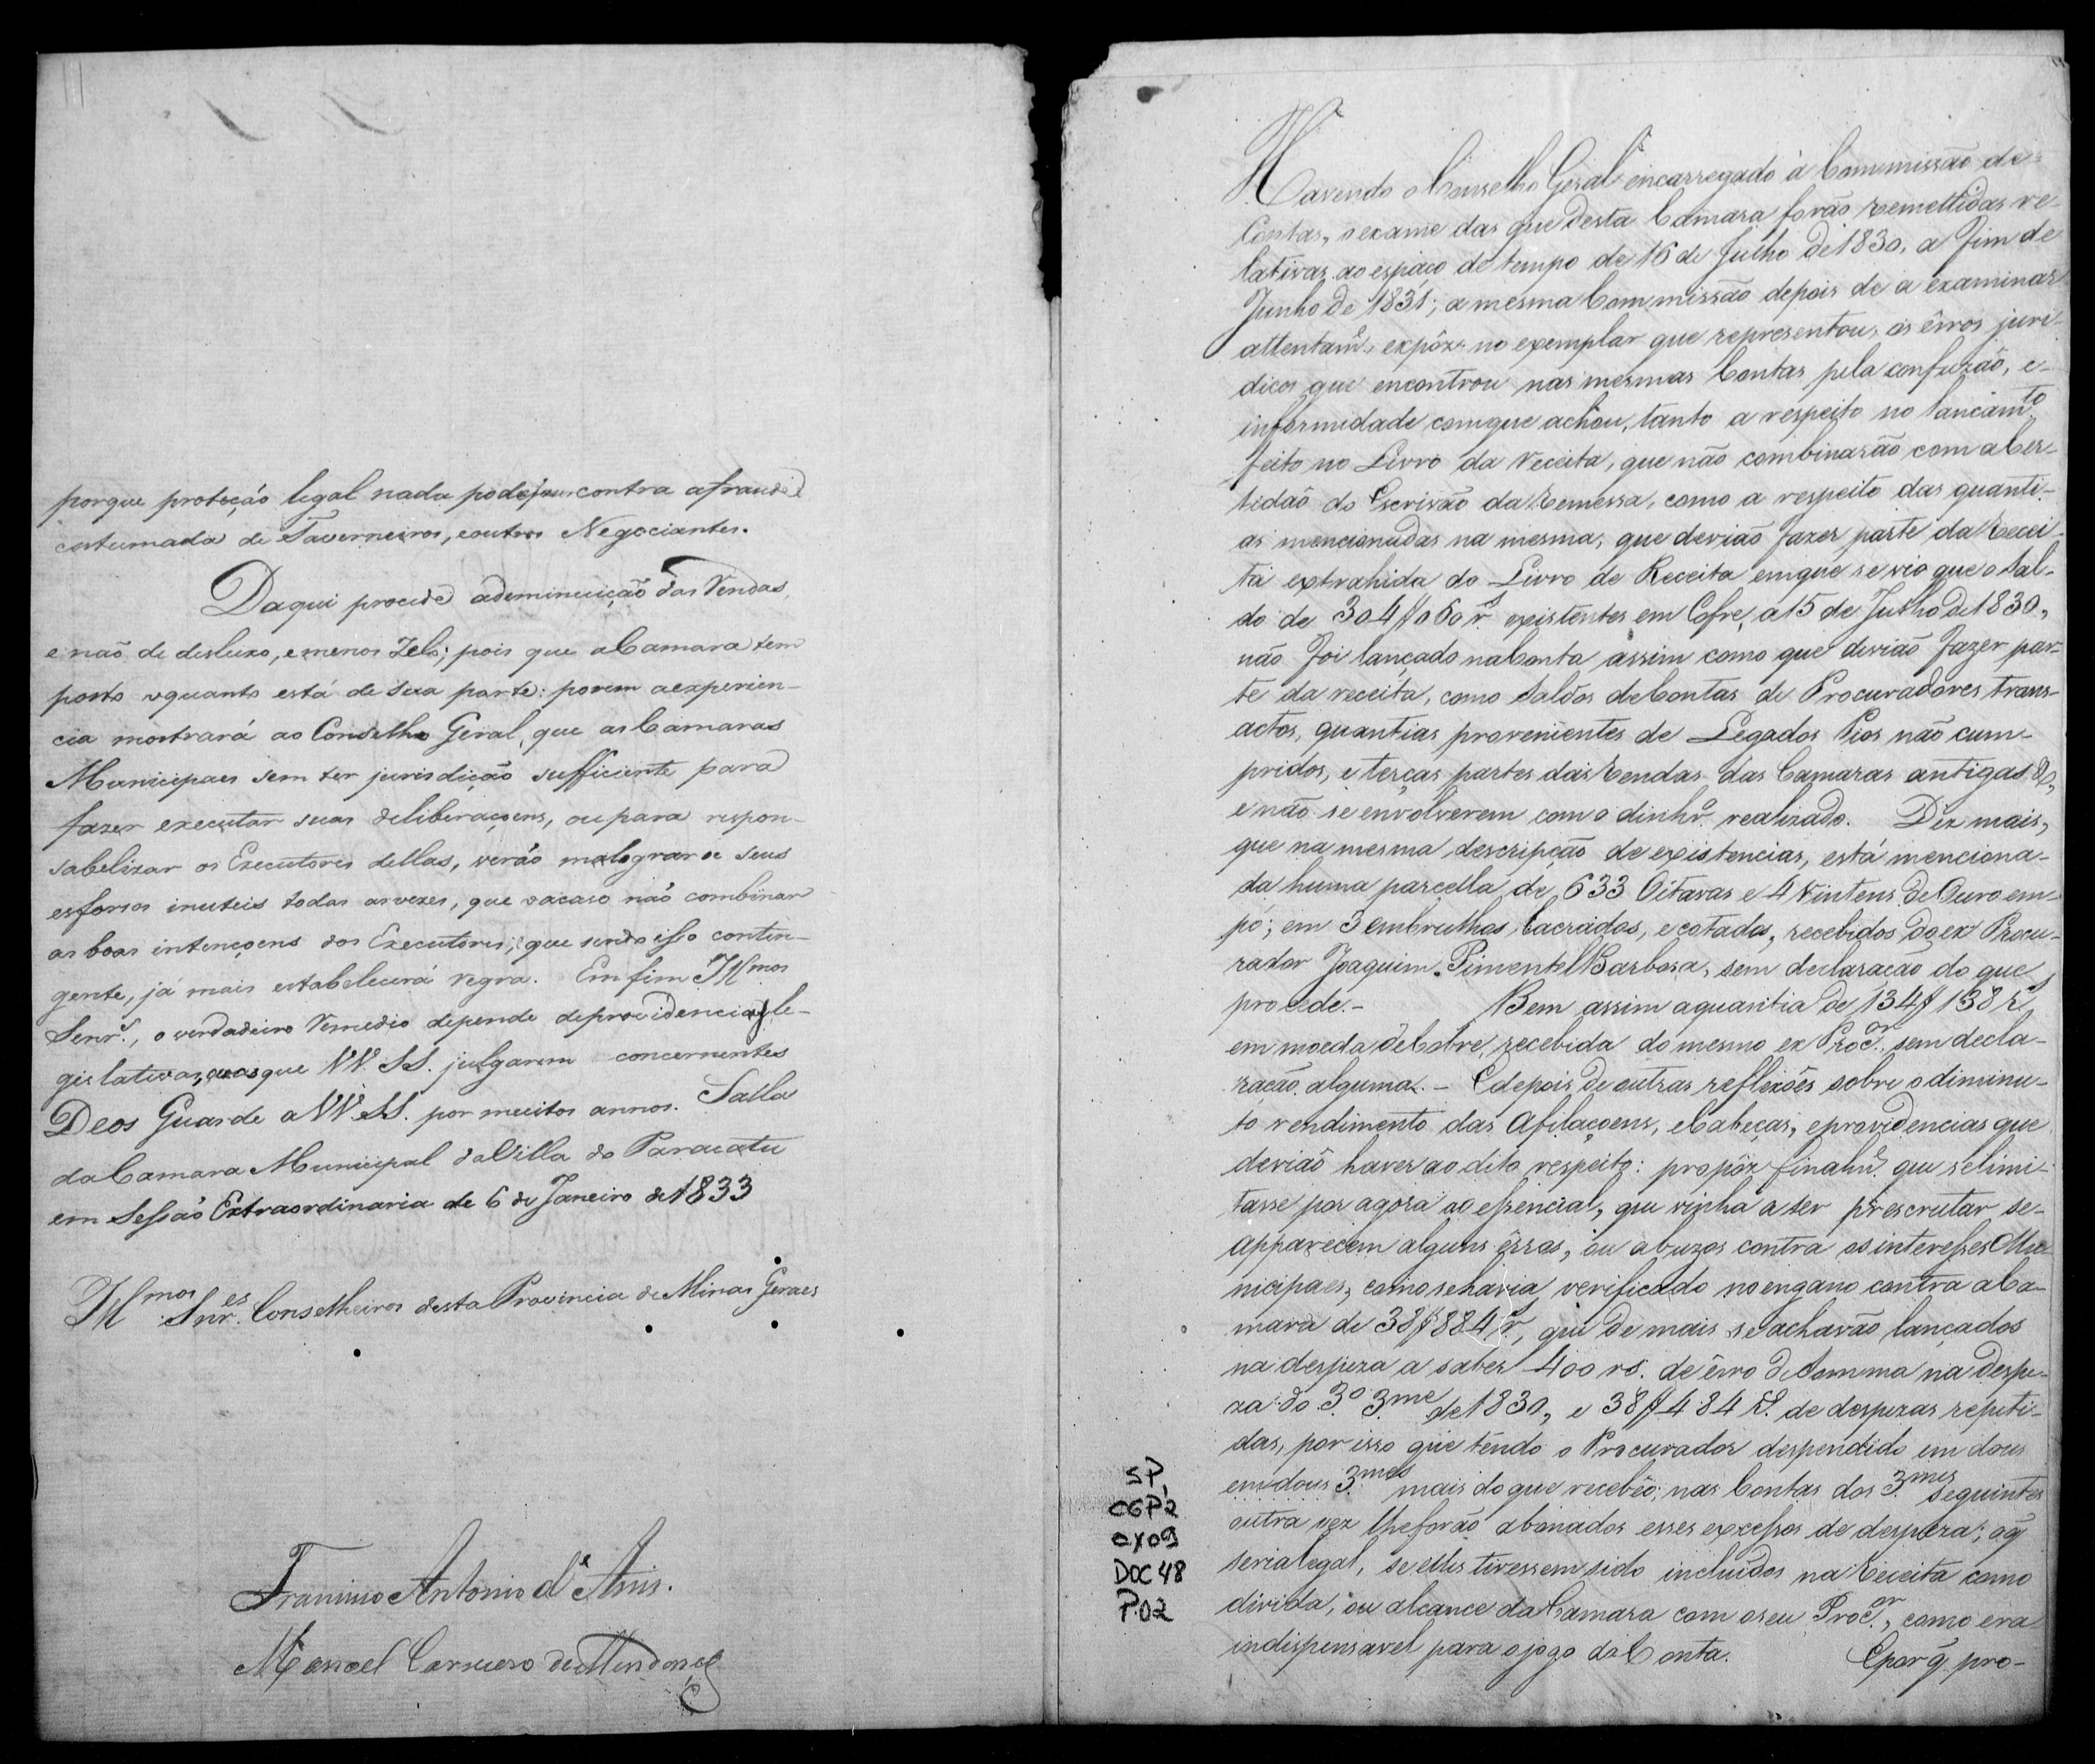 porque proteção legal nada pode contra afraude
costumada de Taverneiros, eoutros Negociantes.
Daqui procede ademinuição das Vendas,
e não de desleixo, emenos Zelo; pois que aCamara tem
posto oquanto está de sua parte: porem aexperien-
cia mostrará ao Conselho Geral, que asCamaras
Municipaes sem ter jurisdição sufficiente para
fazer executar suas deliberaçoens, oupara respon-
sabelizar os Executores dellas, verão malograr se seus
esforsos inuteis todas asvezes, que oacaso não combinar
as boas intençoens dos Executores; que sendo isso contin-
gente, já mais estabelecerá regra. Em fim Illmos
Senrs., o verdadeiro remedio depende deprovidencias le-
gislativas, que VV. SS. julgarem concernentes
Deos Guarde a VV. SS. por muitos annos. Salla
daCamara Municipal daVilla do Paracatu
em Sessão Extraordinaria de 6 de Janeiro de 1833
Illmos Snres. Conselheiros desta Provincia de Minas Geraes
Antonio d'Assis.
Manoel Carneiro de Mendonça
Havendo oConselho Geral encarregado à Commissão de
Contas, o exame das que desta Camara forão remettidas re-
lativas ao espaço de tempo de 16 de Julho de 1830, a fim de
Junho de 1831; a mesma Commissão depois de a examinar
attentame., expôz no exemplar que representou, os êrros juri-
dicos que encontrou nas mesmas Contas pela confuzão, e
informidade comque achou, tanto a respeito no lancamto.
feito no Livro da receita, que não combinarão com aCer-
tidão do Escrivão da Remessa, como a respeito das quanti-
as mencionadas na mesma, que devião fazer parte da Recei-
ta extrahida do Livro de Receita emque se vio que o Sal-
do de 304$060 rs. existentes em Cofre, a 15 de Julho de 1830,
não foi lancado naConta assim como que devião fazer par-
te da receita, como Saldos deContas de Procuradores trans-
actos, quantias provenientes de Legados Pios não cum-
pridos, e terças partes das Rendas das Camaras antigas &,
e não se envolverem com o dinhro. realizado. Diz mais,
que na mesma descripção de existencias, está menciona-
da huma parcella de 633 Oitavas e 4 Vintens de Ouro em
pó; em 3 embrulhos lacrados, e cotados, recebidos do ex Procu-
rador Joaquim Pimentel Barbosa, sem declaração do que
procede. - Bem assim aquantia de 134$138 rs
em moeda deCobre, recebida do mesmo ex Procor., sem decla-
ração alguma. - Edepois de outras reflexões sobre o diminu-
to rendimento das Afilaçoens, eCabeças, eprovidencias que
devião haver ao dito respeito: propôz finalme. que selimi-
tasse por agora ao essencial, que vinha a ser prescrutar se
apparecem alguns êrros, ou abuzos contra os interesses Mu-
nicipaes, como sehavia verificado no engano contra aCa-
mara de 38$884 rs, que de mais se achavão lançados
na despeza a saber 400 rs. de êrro deSomma na despe-
za do 3o. 3me. de 1830, e 38$484 rs. de despezas repeti-
das, por isso que tendo o Procurador despendido em dous
em dous 3.mes mais do que recebêo; nas Contas dos 3.mes seguintes
outra vez lheforão abonados esses excessos de despeza; oq̃
seria legal, se elles tivessem sido incluidos na Receita como
divida, ou alcance da Camara com oseu Procor., como era
indispensavel para o jogo daConta. Eporq̃ pro-
SP,
CGP2
CX09
DOC 48
P.02